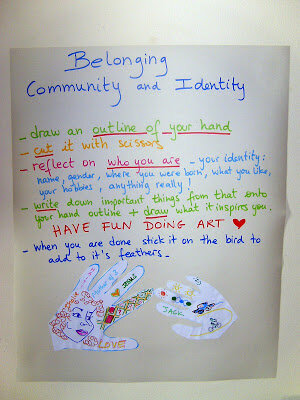 Belonging
Community and Identity
- draw an outline of your hand
- cut it with scissors
- reflect on who you are - your identity:
name, gender, where you were born, what you like,
your hobbies, anything really!
- write down important things from that onto
your hand outline + draw what it inspires you.
HAVE FUN DOING ART
- when you are done stick it on the bird to
add to it's feathers_
JESUS
LOVE
JACK